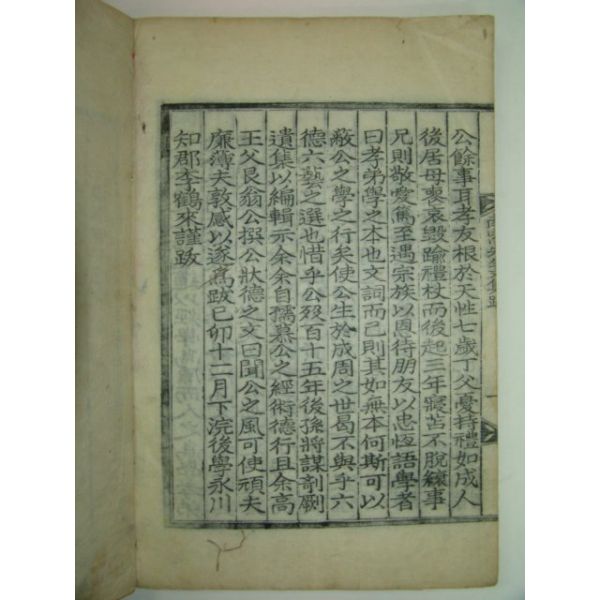 公餘事耳孝友根於天性七歲丁父憂持禮如成人
後居母喪哀毀踰禮杖而後起三年寢苫不脫縗事
兄則敬愛篤至遇宗族以恩待朋友以忠恆語學者
曰孝弟學之本也文詞而已則其如無本何斯可以
敬公之學之行矣使公生於成周之世曷不與乎六
德六藝之選也惜乎公歿百十五年後孫將謀剞劂
遺集以編輯示余余自孺慕公之經術德行且余高
王父艮翁公撰公狀德之文曰聞公之風可使頑夫
廉薄夫敦感以遂爲跋己卯十二月下浣後學永川
知郡李鶴來謹跋